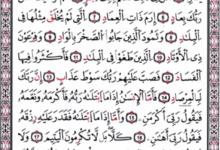 رَبُّكَ بِعَادٍ ٦ إِرَمَ ذَاتِ ٱلْعِمَادِ ٧ ٱلَّتِي لَمْ يُخْلَقْ مِثْلُهَا فِي
ٱلْبِلَٰدِ ٨ وَثَمُودَ ٱلَّذِينَ جَابُوا۟ ٱلصَّخْرَ بِٱلْوَادِ ٩ وَفِرْعَوْنَ
ذِي ٱلْأَوْتَادِ ١٠ ٱلَّذِينَ طَغَوْا۟ فِي ٱلْبِلَٰدِ ١١ فَأَكْثَرُوا۟ فِيهَا
ٱلْفَسَادَ ١٢ فَصَبَّ عَلَيْهِمْ رَبُّكَ سَوْطَ عَذَابٍ ١٣ إِنَّ رَبَّكَ
لَبِٱلْمِرْصَادِ ١٤ فَأَمَّا ٱلْإِنسَٰنُ إِذَا مَا ٱبْتَلَىٰهُ رَبُّهُۥ فَأَكْرَمَهُۥ وَنَعَّمَهُۥ
فَيَقُولُ رَبِّي أَكْرَمَنِ ١٥ وَأَمَّا إِذَا مَا ٱبْتَلَىٰهُ فَقَدَرَ عَلَيْهِ رِزْقَهُۥ
فَيَقُولُ رَبِّي أَهَٰنَنِ ١٦ كَلَّا بَل لَّا تُكْرِمُونَ ٱلْيَتِيمَ ١٧ وَلَا